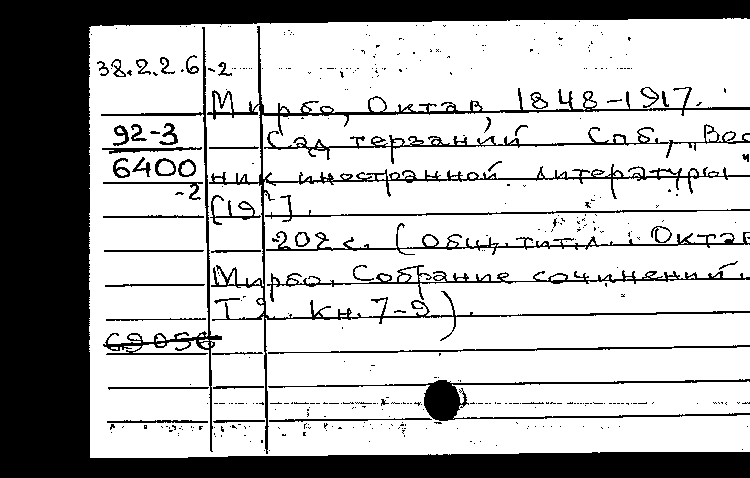 38.2.2.6-2
Мирбо, Октав, 1848-1917.
92-3
6400
-2
Сад терзаний Спб., „Вес
ник иностранной литературы"
[19?].
202 с. (Общ. тит. л.: Октав
Мирбо. Собрание сочинений.
Т 2. Кн. 7-9).
69056